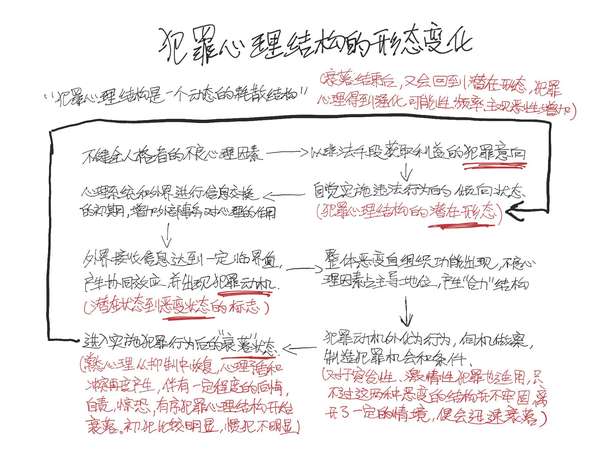 犯罪心理结构的形态变化
"犯罪心理结构是一个动态的耗散结构"
(衰落结束后,又会回到潜在形态,犯罪
心理得到强化,可能性、频率、主观恶性增加)
不健全人格者的不良心理因素
以非法手段获取利益的犯罪意向
心理系统和外界进行信息交换
的初期,增加外部情务对心理的作用
自觉实施违法行为的倾向状态
(犯罪心理结构的潜在形态)
外界接收信息达到一定临界值,
产生协同效应,并出现犯罪动机.
(潜在状态到恶变状态的标志)
整体恶变自组织功能出现,不良心
理因素占主导地位,产生"合力"结构
进入实施犯罪行为后的"衰落"状态.
(常态心理从抑制中恢复,心理矛盾和
冲突再度产生,伴有一定程度的同情,
自责,惊恐,有序犯罪心理结构开始
衰落。初犯比较明显,惯犯不明显)
犯罪动机外化为行为,伺机做案,
制造犯罪机会和条件.
(对于突合性、激情性犯罪也适用,只
不过这两种恶变的结构并不牢固,离
开了一定的情境,便会迅速衰落)